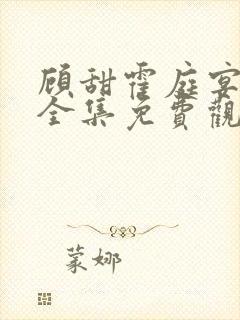 顾甜霍庭宴
全集免費觀
蒙娜